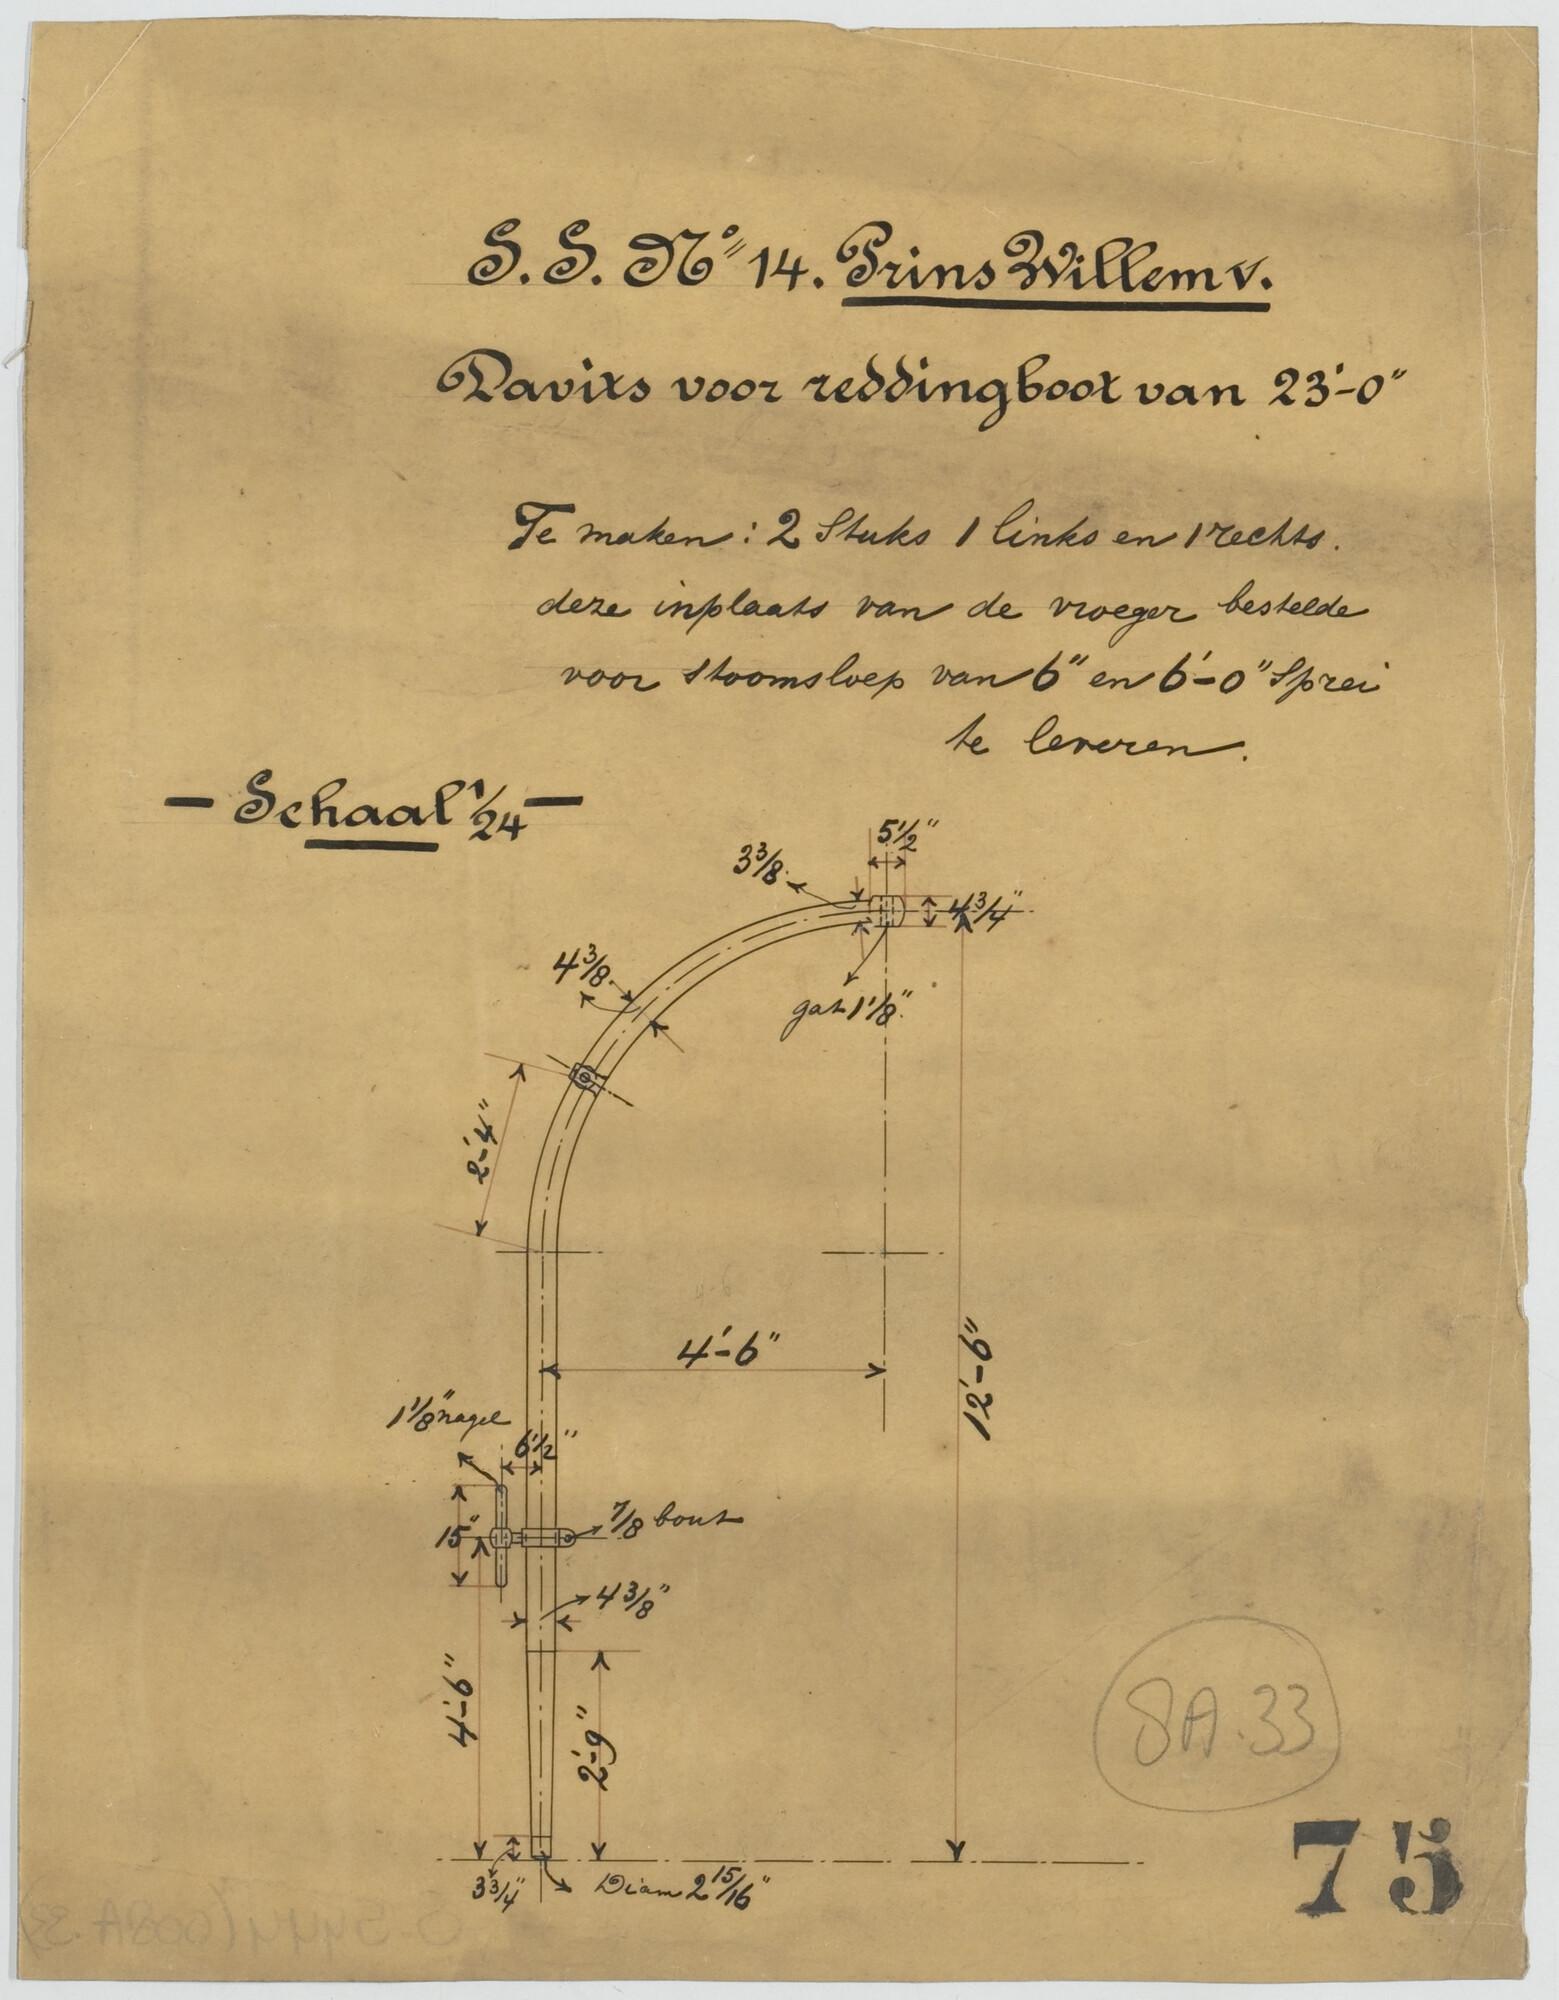 S. S. No 14. Prins Willem V.
Davits voor reddingboot van 23'-0"
Te maken: 2 Stuks 1 links en 1 rechts.
deze inplaats van de vroeger bestelde
voor stoomsloep van 6" en 6'-0" Sprei
te leveren.
- Schaal 1/24 -
5 1/2"
3 3/8
4 3/4"
4 3/8
gat 1 1/8"
2'-4"
4'-6"
12'-6"
1 1/8" nagel
6 1/2"
15"
7/8 bout
4 3/8"
4'-6"
2'-9"
3 3/4"
Diam 2 15/16"
8A.33
75